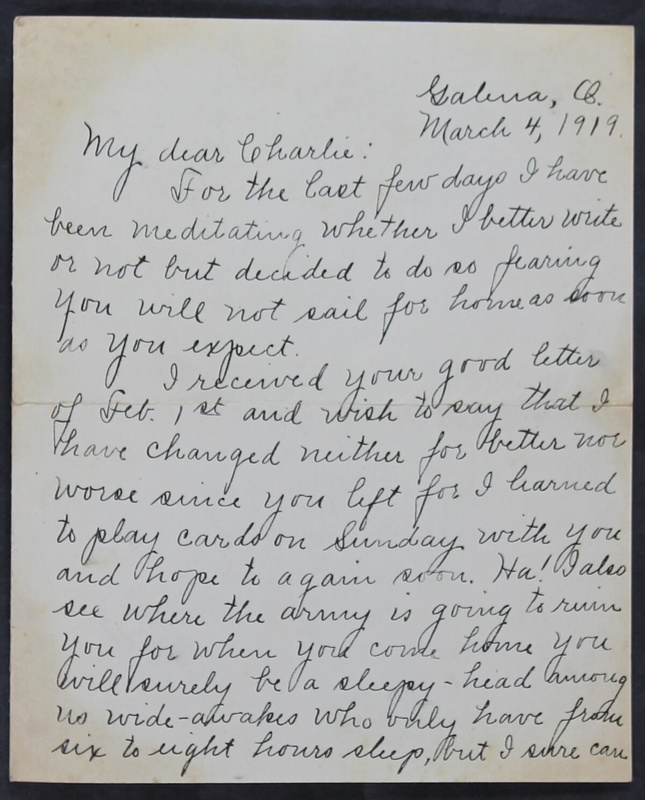 Galena, O.
March 4, 1919.
My dear Charlie:
For the last few days I have
been meditating whether I better write
or not but decided to do so fearing
you will not sail for home as soon
as you expect.
I received your good letter
of Feb. 1st and wish to say that I
have changed neither for better nor
worse since you left for I learned
to play cards on Sunday with you
and hope to again soon. Ha! I also
see where the army is going to ruin
you for when you come home you
will surely be a sleepy-head among
us wide-awakes who only have from
six to eight hours sleep, but I sure can